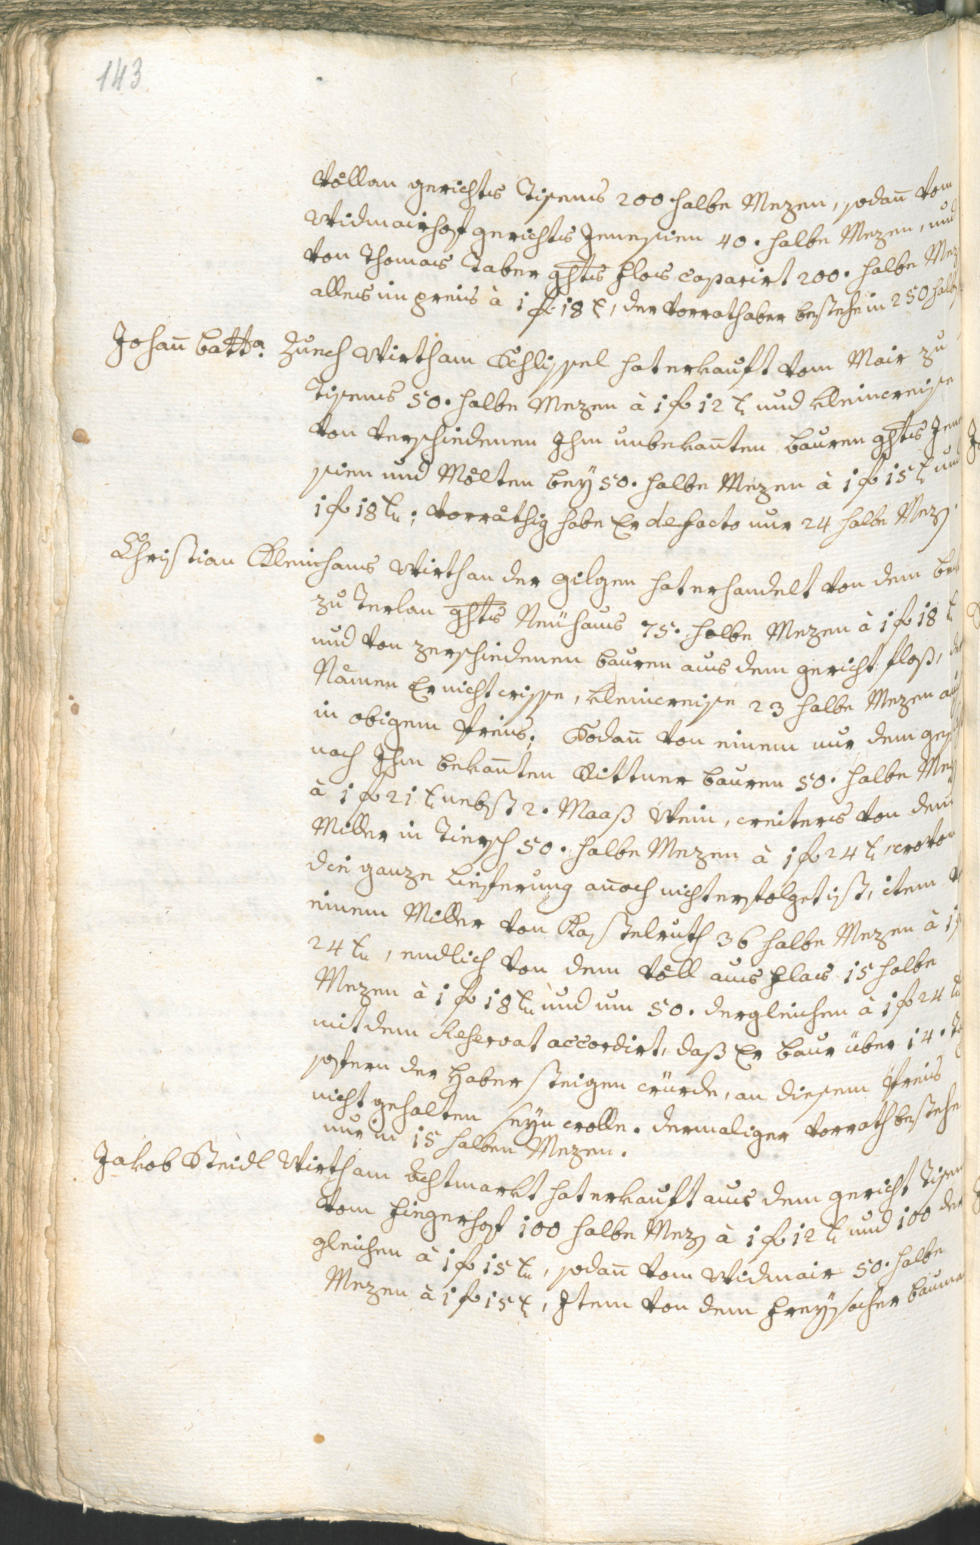 143
Völlan gerichts Tisens 200 halbe Mezen, sodañ vom
Widmairhof gerichts Jenesien 40. halbe Mezen, und
von Thomas Taber ghts Flas caparirt 200. halbe Mez
alles im preis à 1 f 18 x, der vorrath aber bestehe in 250 halb
Johañ Batta Zuech Wirth am Schlissel hat erkauft vom Mair zu
Tisens 50. halbe Mezen à 1 f 12 x und kleinweise
von verschiedenen Ihm unbekañten bauren ghts Jene
sien und Mölten bey 50. halbe Mezen à 1 f 15 x und
1 f 18 x; vorräthig habe Er de facto nur 24 halbe Mez
Christian Kleinhans Wirth an der Gilgen hat erhandelt von dem
zu Terlan ghts Neühaus 75. halbe Mezen à 1 f 18 x
und von zerschiedenen bauren aus dem gericht Flaß,
Nämen Er nicht wisse, kleinweise 23 halbe Mezen
in obigem Preis; Sodañ von einem nur dem
nach Ihm bekañten Rittner bauren 50. halbe Mez
à 1 f 21 x nebst 2. Maaß Wein, weiters von dem
Miller in Tiersch 50. halbe Mezen à 1 f 24 x, wovon
die ganze lieferung añoch nicht erfolget ist, item
einem Miller von Kastelruth 36 halbe Mezen à 1 f
24 x, endlich von dem Völl aus Flas 15 halbe
Mezen à 1 f 18 x und um 50. dergleichen à 1 f 24 x
mit dem Reservat accordirt, daß Er baur über 14.
sofern der Haber steigen würde, an diesem Preis
nicht gehalten seyn wolle. dermaliger vorrath bestehe
nur in 15 halben Mezen.
Jakob Steidl Wirth am Obstmarkt hat erkauft aus dem gericht Tisens
vom Fingerhof 100 halbe Mez à 1 f 12 x und 100 der
gleichen à 1 f 15 x, sodañ vom Widmair 50. halbe
Mezen à 1 f 15 x, Item von dem Freysacher